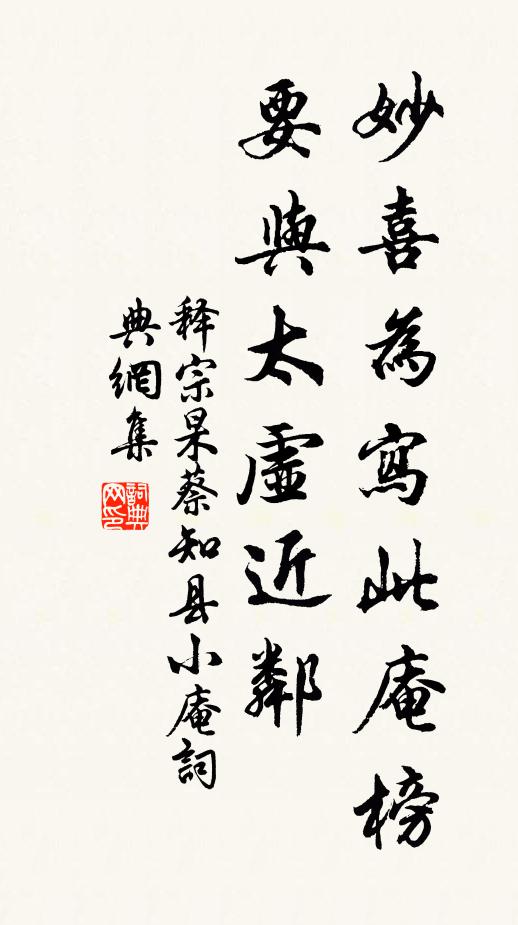 妙喜為寫此庵榜
要與太虛近鄰
释宗杲蔡知县小庵詞
典網集
詞典網印